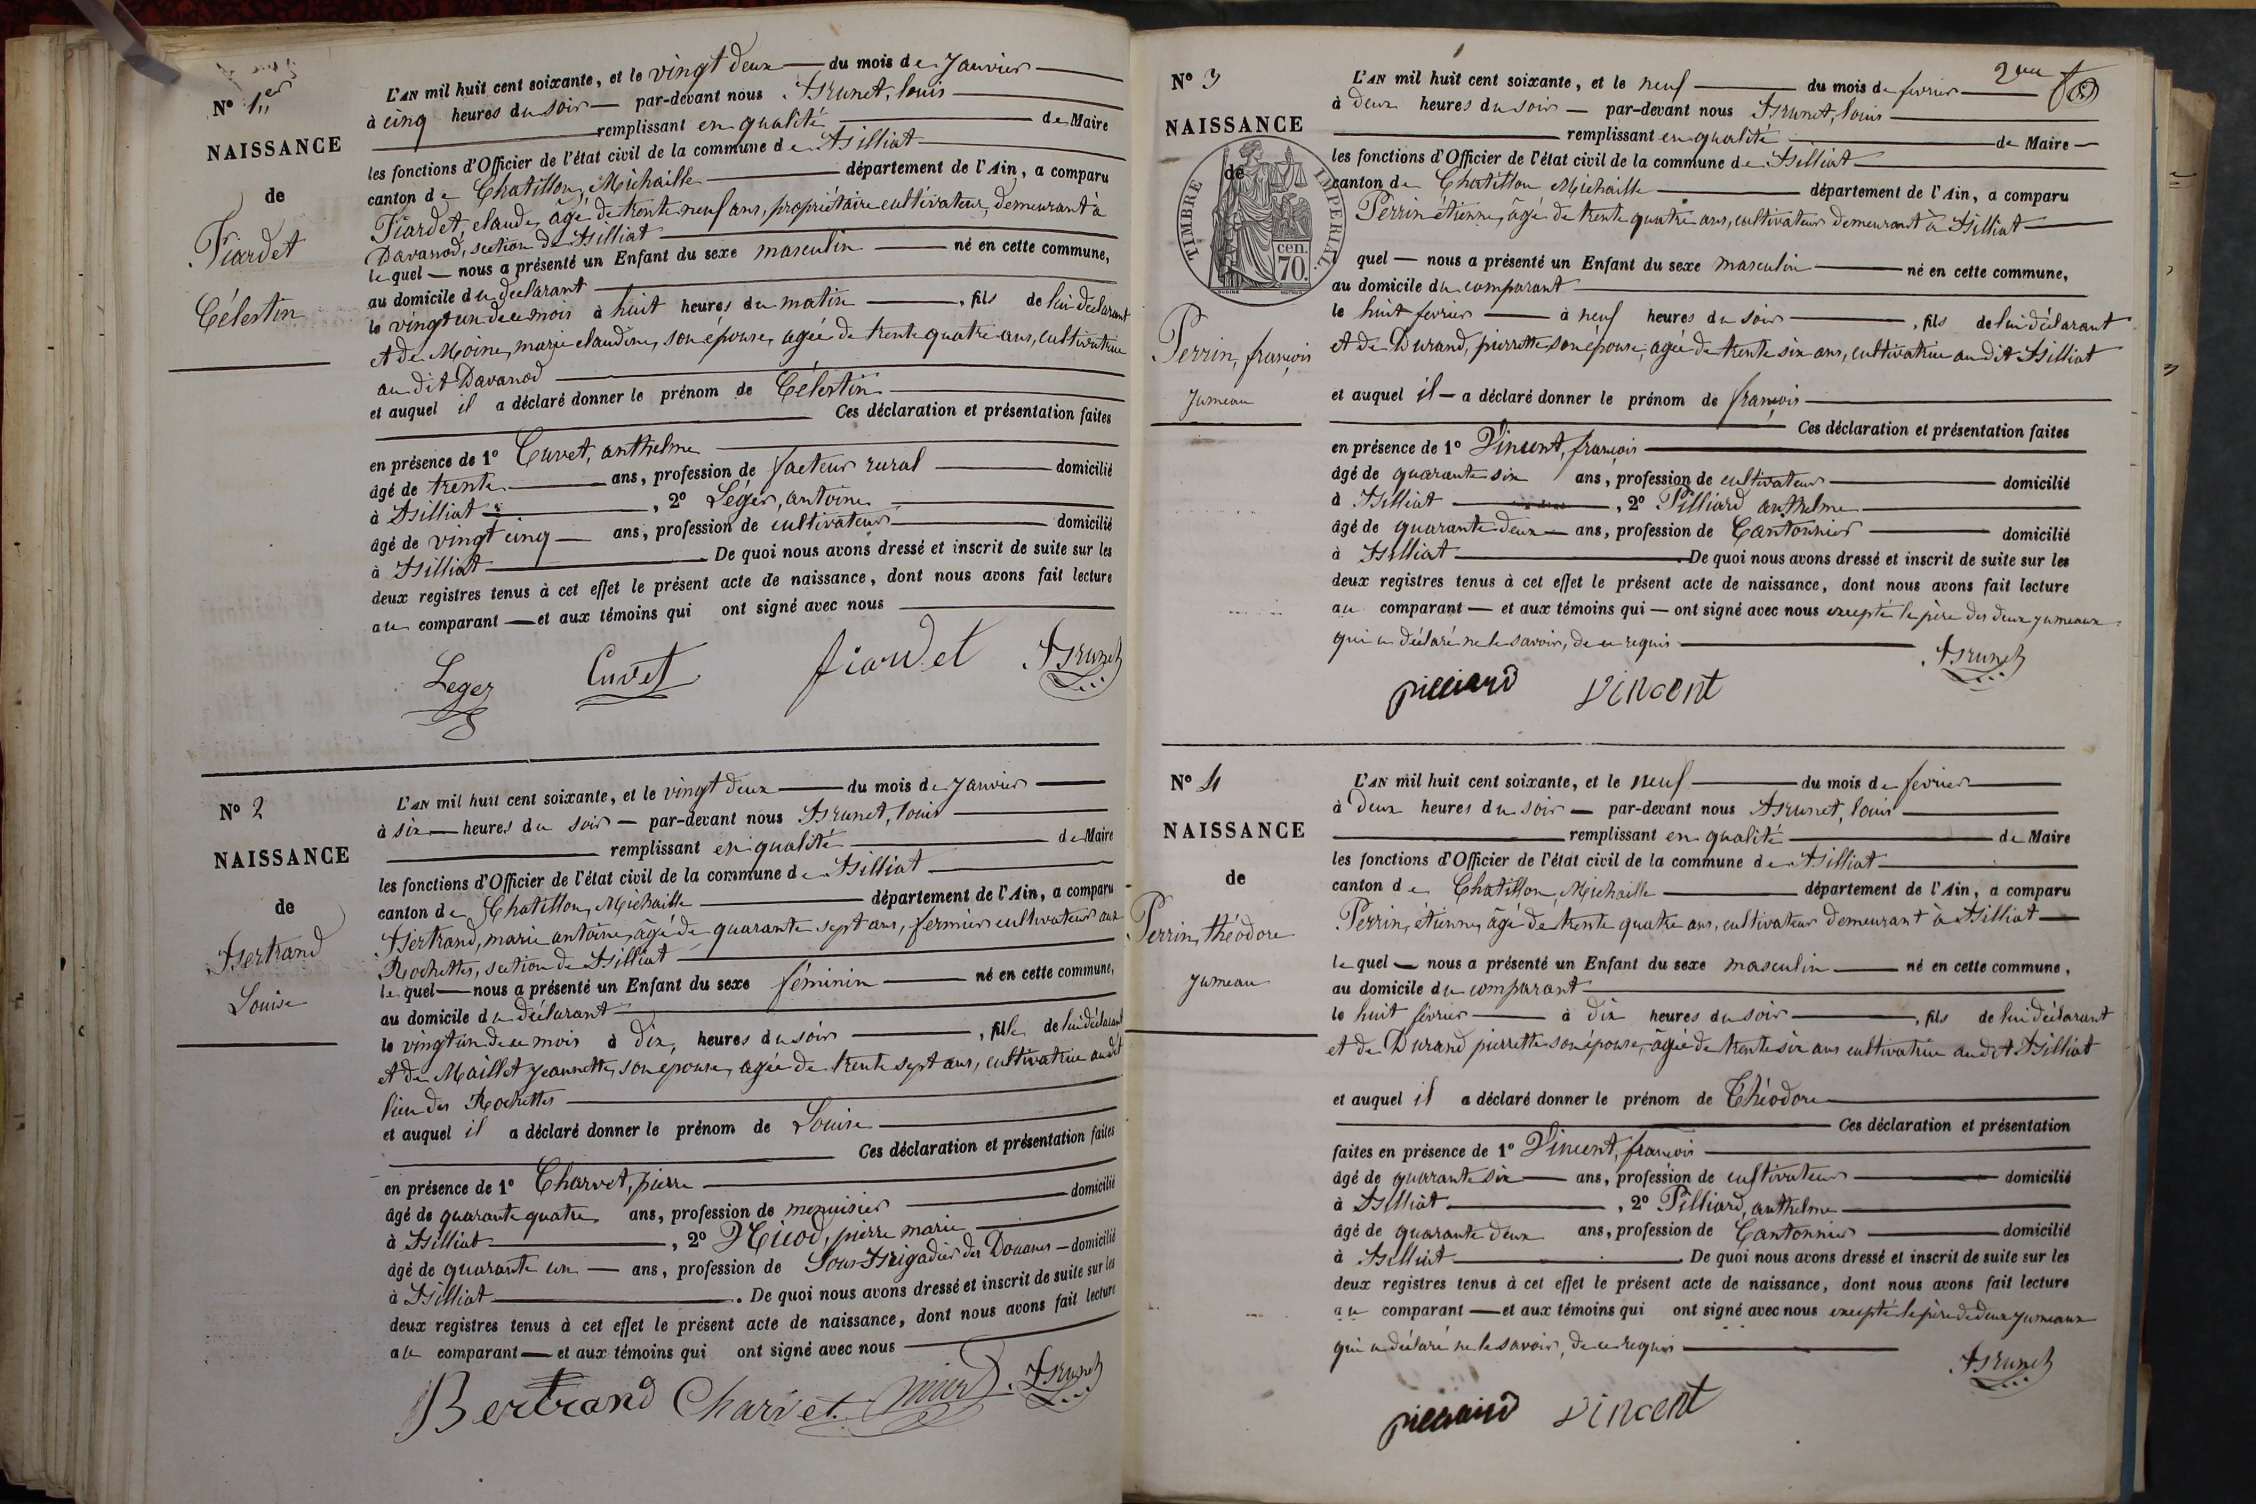 N° 1er
NAISSANCE
de
Fiardet
Célestin
L'AN mil huit cent soixante, et le vingt deux du mois de Janvier
à cinq heures du soir par-devant nous Brunet, louis
remplissant en qualité de Maire
les fonctions d'Officier de l'état civil de la commune de Billiat
canton de Chatillon, Michaille département de l'Ain, a comparu
Fiardet, claude, âgé de trente neuf ans, propriétaire cultivateur, demeurant à
Davanod, section de Billiat
lequel nous a présenté un Enfant du sexe masculin né en cette commune,
au domicile du déclarant
le vingt un de ce mois à huit heures du matin, fils de lui déclarant
et de Moine, marie claudine, son épouse, agée de trente quatre ans, cultivatrice
au dit Davanod
et auquel il a déclaré donner le prénom de Célestin
Ces déclaration et présentation faites
en présence de 1° Cuvet, anthelme
âgé de trente ans, profession de facteur rural domicilié
à Billiat, 2° Léger, antoine
âgé de vingt cinq ans, profession de cultivateur domicilié
à Billiat De quoi nous avons dressé et inscrit de suite sur les
deux registres tenus à cet effet le présent acte de naissance, dont nous avons fait lecture
au comparant et aux témoins qui ont signé avec nous
Leger Cuvet fiardet Brunet
N° 2
NAISSANCE
de
Bertrand
Louise
L'AN mil huit cent soixante, et le vingt deux du mois de Janvier
à six heures du soir par-devant nous Brunet, louis
remplissant en qualité de Maire
les fonctions d'Officier de l'état civil de la commune de Billiat
canton de Chatillon, Michaille département de l'Ain, a comparu
Bertrand, marie antoine, âgé de quarante sept ans, fermier cultivateur aux
Rochettes, section de Billiat
lequel nous a présenté un Enfant du sexe féminin né en cette commune,
au domicile du déclarant
le vingt un de ce mois à dix heures du soir, fille de lui déclarant
et de Maillet Jeannette, son épouse, agée de trente sept ans, cultivatrice au dit
lieu des Rochettes
et auquel il a déclaré donner le prénom de Louise
Ces déclaration et présentation faites
en présence de 1° Charvet, pierre
âgé de quarante quatre ans, profession de menuisier domicilié
à Billiat, 2° Nicod, pierre marie
âgé de quarante un ans, profession de Sous Brigadier des Douanes domicilié
à Billiat. De quoi nous avons dressé et inscrit de suite sur les
deux registres tenus à cet effet le présent acte de naissance, dont nous avons fait lecture
au comparant et aux témoins qui ont signé avec nous
Bertrand Charvet Nicod Brunet
2me
N° 3
NAISSANCE
de
TIMBRE IMPERIAL
cen.
70.
Perrin, françois
Jumeau
L'AN mil huit cent soixante, et le neuf du mois de fevrier
à deux heures du soir par-devant nous Brunet, louis
remplissant en qualité de Maire
les fonctions d'Officier de l'état civil de la commune de Billiat
canton de Chatillon Michaille département de l'Ain, a comparu
Perrin étienne, âgé de trente quatre ans, cultivateur demeurant à Billiat
quel nous a présenté un Enfant du sexe masculin né en cette commune,
au domicile du comparant
le huit fevrier à neuf heures du soir, fils de lui déclarant
et de Durand, pierrette son épouse, agée de trente six ans, cultivatrice au dit Billiat
et auquel il a déclaré donner le prénom de françois
Ces déclaration et présentation faites
en présence de 1° Vincent, françois
âgé de quarante six ans, profession de cultivateur domicilié
à Billiat, 2° Pilliard anthelme
âgé de quarante deux ans, profession de Cantonnier domicilié
à Billiat De quoi nous avons dressé et inscrit de suite sur les
deux registres tenus à cet effet le présent acte de naissance, dont nous avons fait lecture
au comparant et aux témoins qui ont signé avec nous excepté le père des deux jumeaux
qui a déclaré ne le savoir, de ce requis
pilliard Vincent Brunet
N° 4
NAISSANCE
de
Perrin, théodore
Jumeau
L'AN mil huit cent soixante, et le neuf du mois de fevrier
à deux heures du soir par-devant nous Brunet, louis
remplissant en qualité de Maire
les fonctions d'Officier de l'état civil de la commune de Billiat
canton de Chatillon, Michaille département de l'Ain, a comparu
Perrin, étienne, âgé de trente quatre ans, cultivateur demeurant à Billiat
lequel nous a présenté un Enfant du sexe masculin né en cette commune,
au domicile du comparant
le huit fevrier à dix heures du soir, fils de lui déclarant
et de Durand pierrette son épouse, âgée de trente six ans cultivatrice au dit Billiat
et auquel il a déclaré donner le prénom de Théodore
Ces déclaration et présentation
faites en présence de 1° Vincent, françois
âgé de quarante six ans, profession de cultivateur domicilié
à Billiat, 2° Pilliard, anthelme
âgé de quarante deux ans, profession de Cantonnier domicilié
à Billiat. De quoi nous avons dressé et inscrit de suite sur les
deux registres tenus à cet effet le présent acte de naissance, dont nous avons fait lecture
au comparant et aux témoins qui ont signé avec nous excepté le père de deux jumeaux
qui a déclaré ne le savoir, de ce requis
pilliard Vincent Brunet